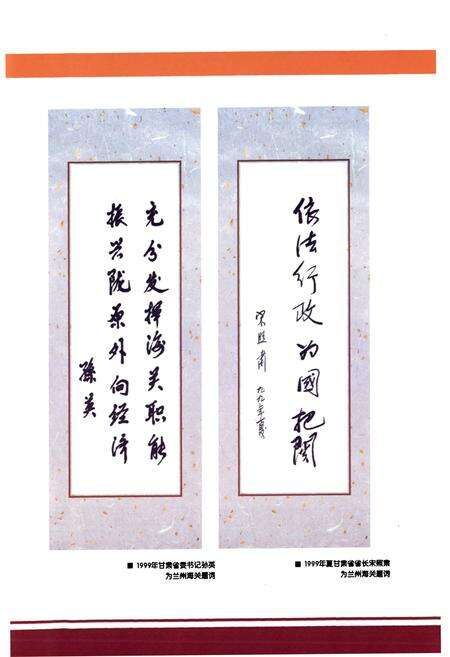 充分发挥海关职能
振兴陇原外向经济
孙英
依法行政 为國把関
宋照肃 九九年夏
■ 1999年甘肃省委书记孙英
为兰州海关题词
■ 1999年夏甘肃省省长宋照肃
为兰州海关题词